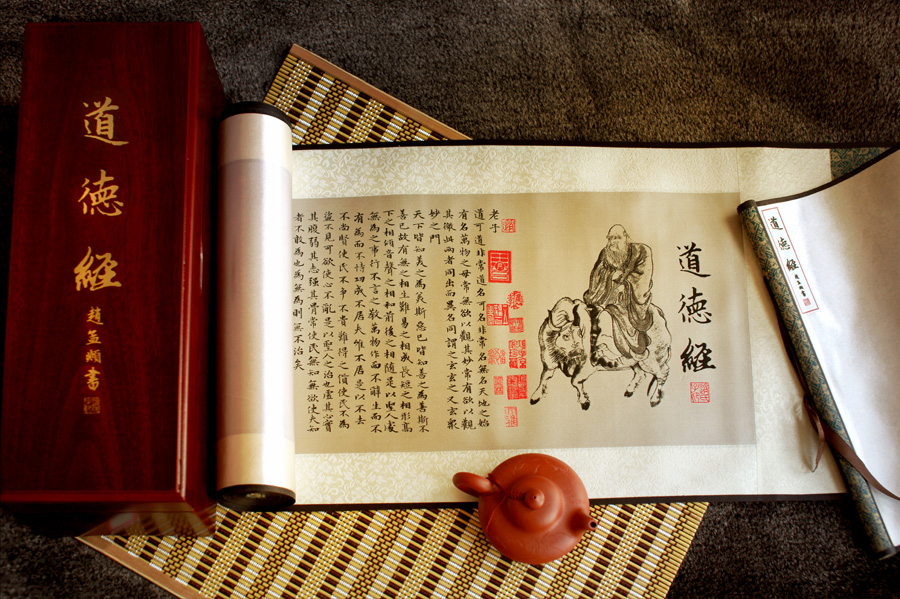 道德經
趙孟頫書
道德經
老子
道可道非常道名可名非常名無名天地之始
有名萬物之母常無欲以觀其妙常有欲以觀
其徼此兩者同出而異名同謂之玄玄之又玄衆
妙之門
天下皆知美之為美斯惡已皆知善之為善斯不
善已故有無之相生難易之相成長短之相形高
下之相傾音聲之相和前後之相隨是以聖人處
無為之事行不言之教萬物作而不辭生而不
有為而不恃功成不居夫惟不居是以不去
不尚賢使民不爭不貴難得之貨使民不為
盜不見可欲使心不亂是以聖人之治也虛其心實
其腹弱其志強其骨常使民無知無欲使夫知
者不敢為也為無為則無不治矣
道德經
趙孟頫書